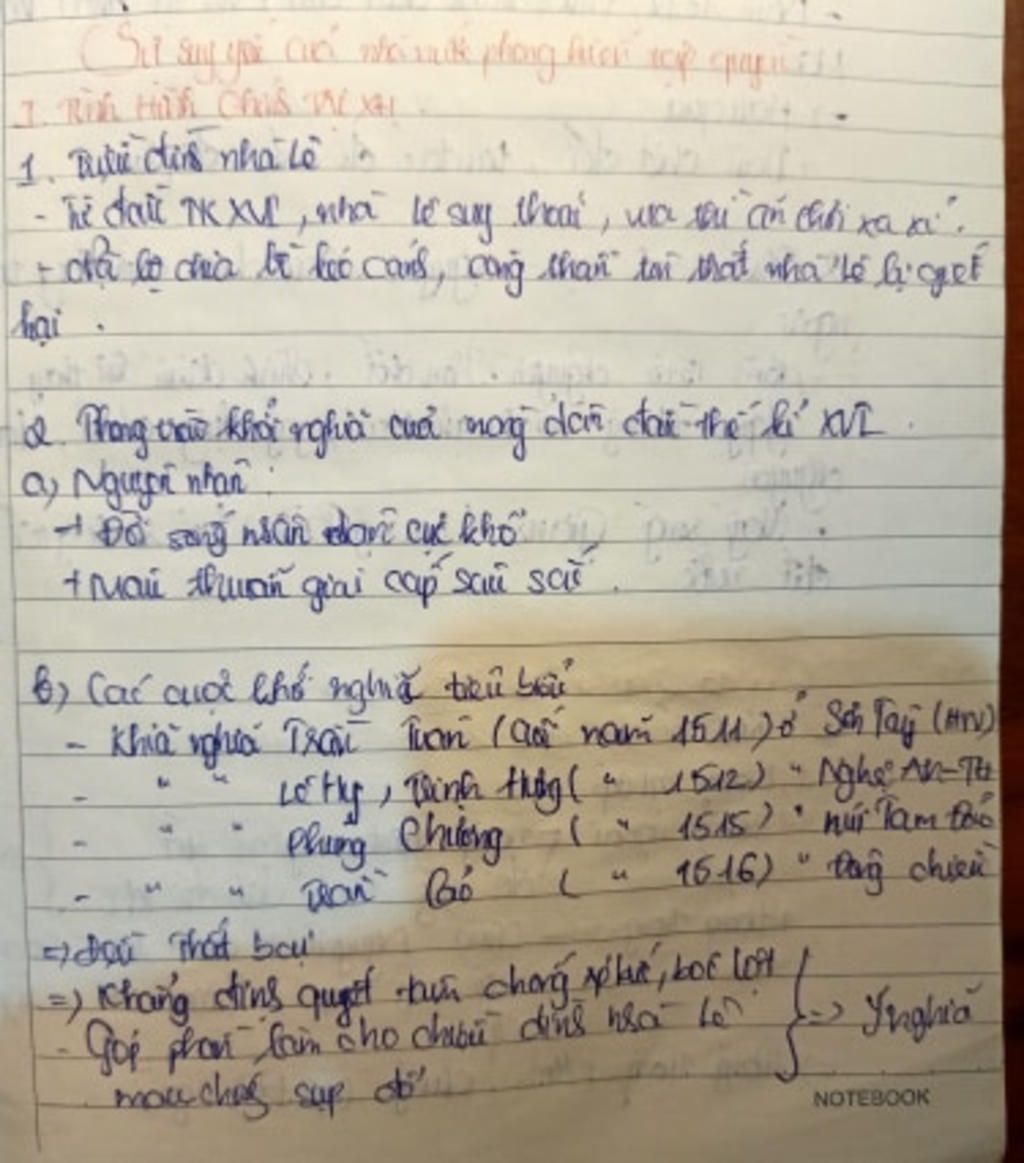 Sự suy yếu của nhà nước phong kiến tập quyền
I. Tình Hình Chính Trị XH
1. Triều đình nhà Lê
- Từ đầu TK XVI, nhà Lê suy thoái, vua tôi ăn chơi xa xỉ.
- nội bộ chia bè kéo cánh, công thần tôn thất nhà Lê bị giết
hại.
2. Phong trào khởi nghĩa của nông dân đầu thế kỉ XVI.
a) Nguyên nhân:
+ Đời sống nhân dân cực khổ
+ Mâu thuẫn giai cấp sâu sắc.
b) Các cuộc khởi nghĩa tiêu biểu
- Khởi nghĩa Trần Tuân (cuối năm 1511) ở Sơn Tây (HN)
- " " Lê Hy, Trịnh Hưng ( " 1512) " Nghệ An-TH
- " " Phùng Chương ( " 1515) " núi Tam Đảo
- " " Trần Cảo ( " 1516) " Đông chiều
=> Đều thất bại
=> Khẳng định quyết tâm chống áp bức, bóc lột
- Góp phần làm cho triều đình nhà Lê => Ý nghĩa
mau chóng sụp đổ
NOTEBOOK